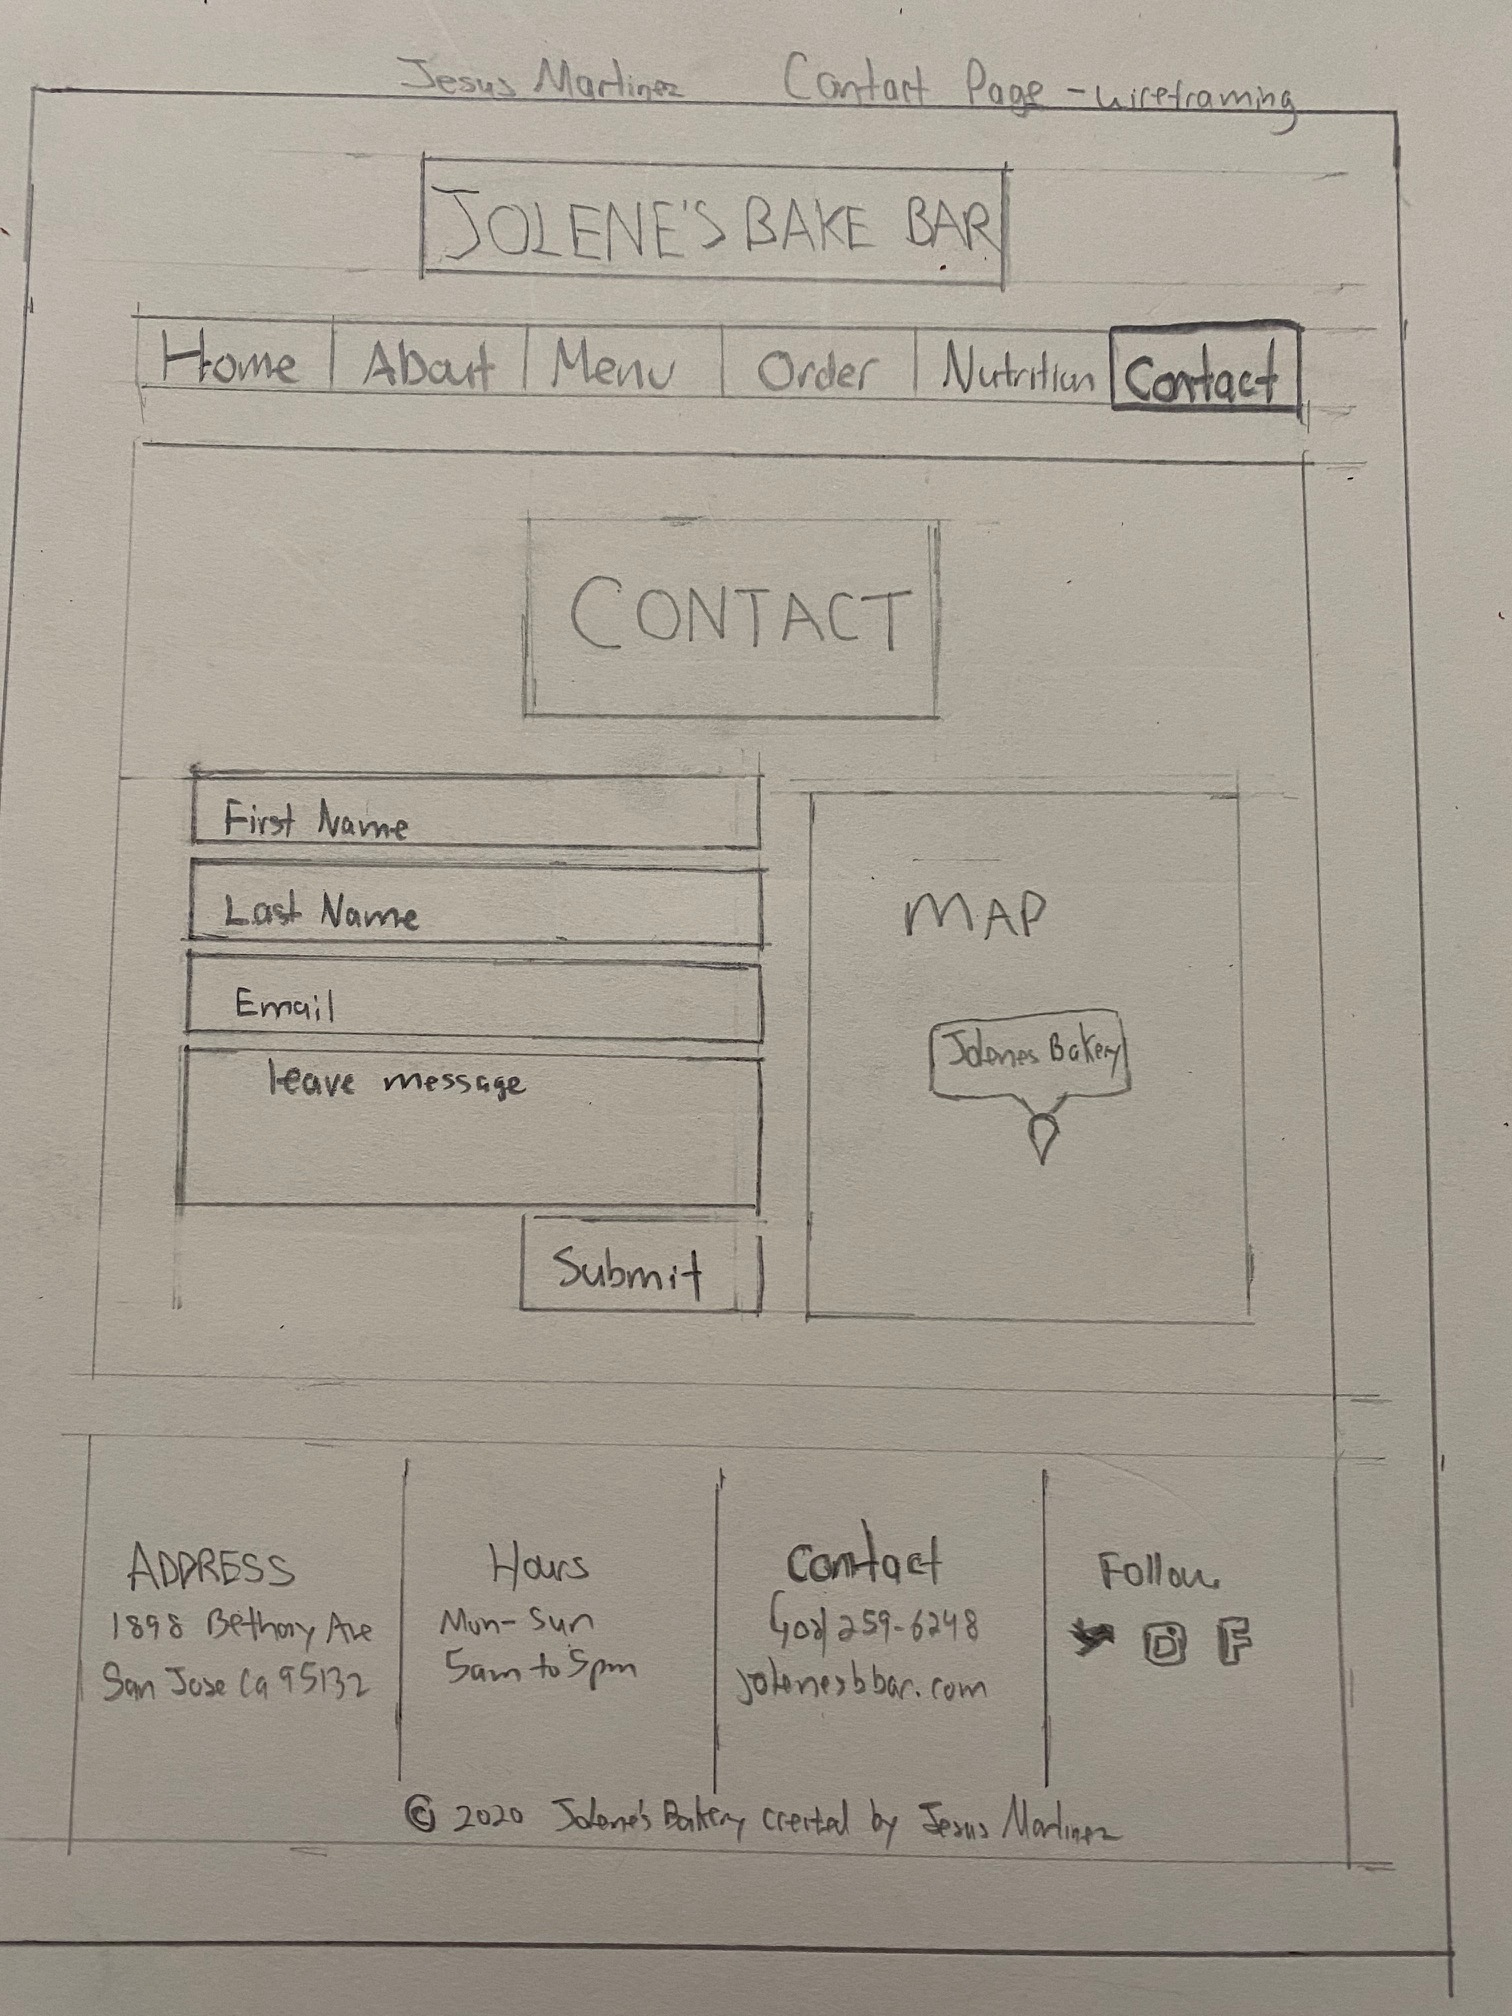 Jesus Martinez Contact Page - wireframing
JOLENE'S BAKE BAR
Home About Menu Order Nutrition Contact
CONTACT
First Name
Last Name
Email
leave message
Submit
MAP
Jolenes Bakery
ADDRESS
1898 Bethany Ave
San Jose Ca 95132
Hours
Mon-Sun
5am to 5pm
Contact
(408) 259-6248
jolenesbbar.com
Follow
F
© 2020 Jolene's Bakery created by Jesus Martinez